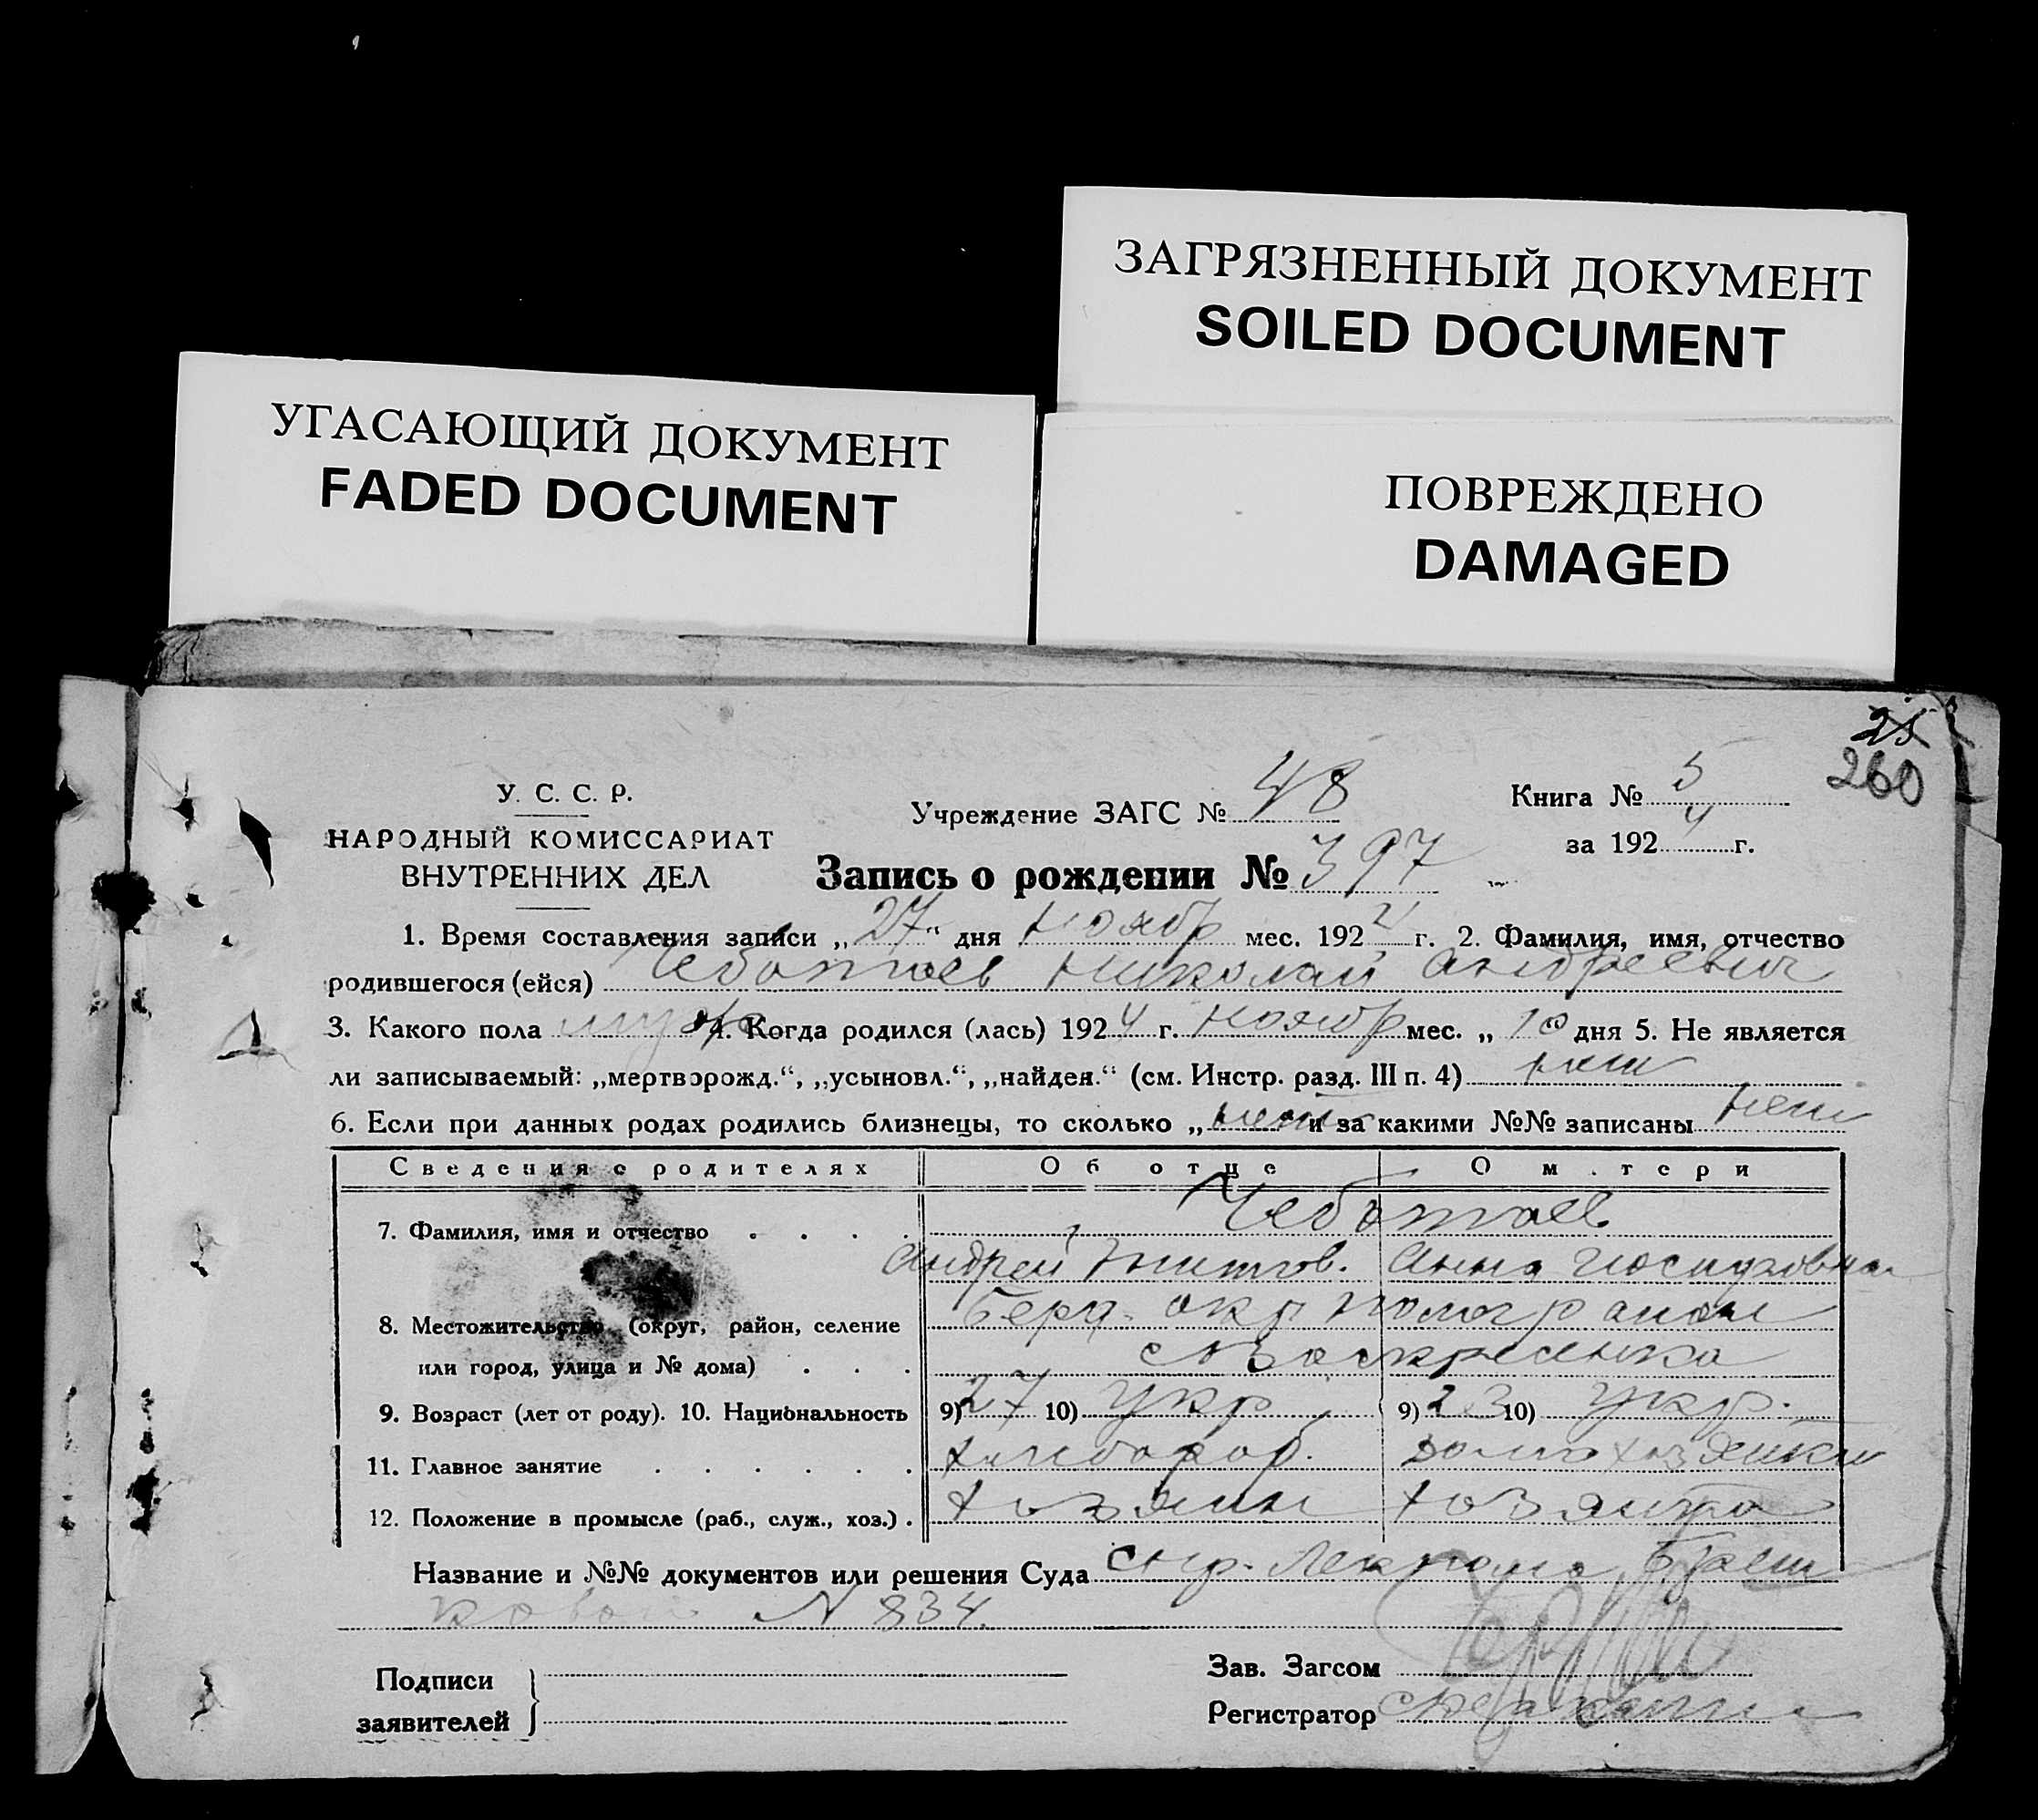 ЗАГРЯЗНЕННЫЙ ДОКУМЕНТ
SOILED DOCUMENT
УГАСАЮЩИЙ ДОКУМЕНТ
FADED DOCUMENT
ПОВРЕЖДЕНО
DAMAGED
25
260
У. С. С. Р.
НАРОДНЫЙ КОМИССАРИАТ
ВНУТРЕННИХ ДЕЛ
Учреждение ЗАГС № 48
Книга № 5
за 1924 г.
Запись о рождении № 397
1. Время составления записи „27“ дня Ноябр мес. 1924 г. 2. Фамилия, имя, отчество
родившегося (ейся) Чеботаев Николай Андреевич
3. Какого пола муж 4. Когда родился (лась) 1924 г. Ноябр мес. „10“ дня 5. Не является
ли записываемый: „мертворожд.“, „усыновл.“, „найден.“ (см. Инстр. разд. III п. 4) нет
6. Если при данных родах родились близнецы, то сколько „нет“ и за какими №№ записаны нет
Сведения о родителях Об отце О матери
7. Фамилия, имя и отчество Чеботаев
Андрей Анна Иосифовна
8. Местожительство (округ, район, селение Берд. окр Полог район
или город, улица и № дома) с Воскресенка
9. Возраст (лет от роду). 10. Национальность 9) 27 10) укр 9) 23 10) укр.
11. Главное занятие хлебороб. домохозяйка
12. Положение в промысле (раб., служ., хоз.) хозяин хозяйка
Название и №№ документов или решения Суда Спр.
N 834.
Подписи
заявителей
Зав. Загсом
Регистратор